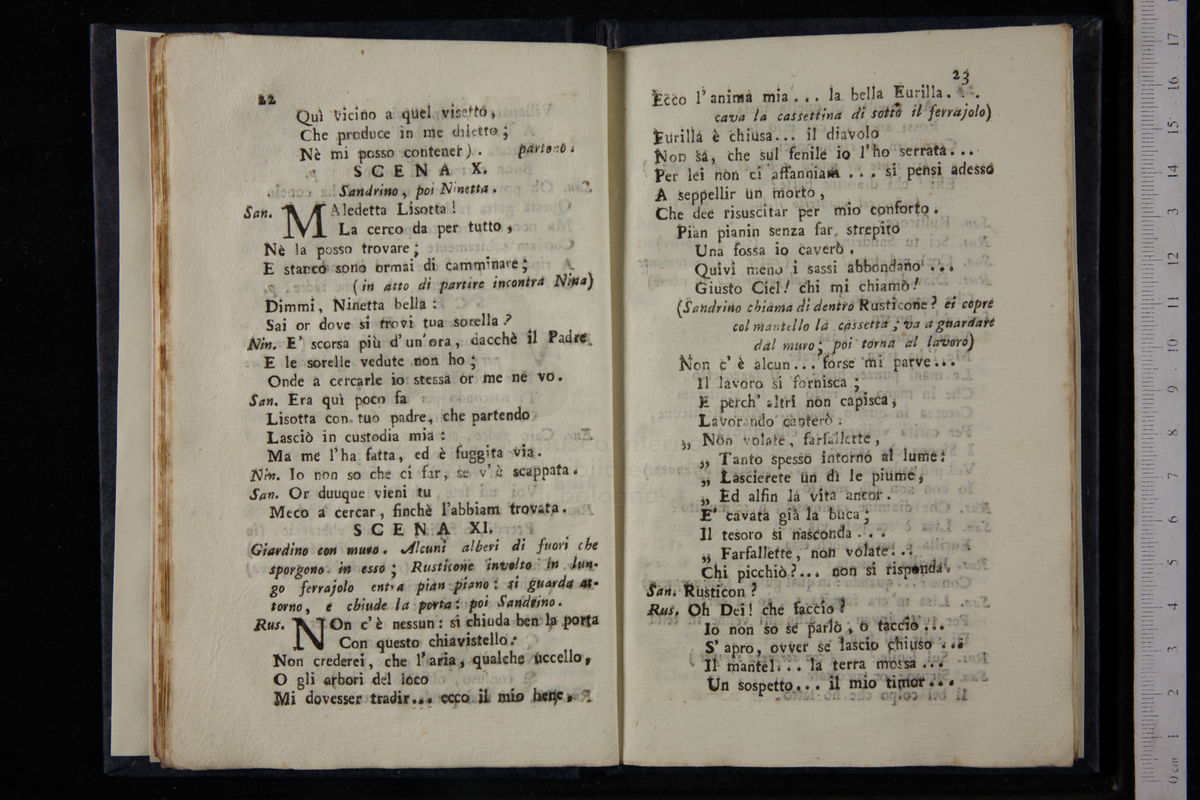 22
Quì vicino a quel visetto,
Che produce in me diletto;
Nè mi posso contener). partono.
SCENA X.
Sandrino, poi Ninetta.
San. MAledetta Lisotta!
La cerco da per tutto,
Nè la posso trovare;
E stanco sono ormai di camminare;
(in atto di partire incontra Nina)
Dimmi, Ninetta bella:
Sai or dove si trovi tua sorella?
Nin. E' scorsa più d'un'ora, dacchè il Padre
E le sorelle vedute non ho;
Onde a cercarle io stessa or me ne vo.
San. Era quì poco fa
Lisotta con tuo padre, che partendo
Lasciò in custodia mia:
Ma me l'ha fatta, ed è fuggita via.
Nin. Io non so che ci far, se v'è scappata.
San. Or duuque vieni tu
Meco a cercar, finchè l'abbiam trovata.
SCENA XI.
Giardino con muro. Alcuni alberi di fuori che
sporgono in esso; Rusticone involto in lun-
go ferrajolo entra pian piano: si guarda at-
torno, e chiude la porta: poi Sandrino.
Rus. NOn c'è nessun: si chiuda ben la porta
Con questo chiavistello:
Non crederei, che l'aria, qualche uccello,
O gli arbori del loco
Mi dovesser tradir... ecco il mio bene,
23
Ecco l'anima mia... la bella Eurilla...
cava la cassettina di sotto il ferrajolo)
Eurilla è chiusa... il diavolo
Non sa, che sul fenile io l'ho serrata...
Per lei non ci affanniam... si pensi adesso
A seppellir un morto,
Che dee risuscitar per mio conforto.
Pian pianin senza far strepito
Una fossa io caverò.
Quivi meno i sassi abbondano...
Giusto Ciel! chi mi chiamò!
(Sandrino chiama di dentro Rusticone? ei copre
col mantello la cassetta; va a guardare
dal muro; poi torna al lavoro)
Non c'è alcun... forse mi parve...
Il lavoro si fornisca;
E perch' altri non capisca,
Lavorando canterò:
„ Non volate, farfallette,
„ Tanto spesso intorno al lume:
„ Lascierete un dì le piume,
„ Ed alfin la vita ancor.
E' cavata già la buca;
Il tesoro si nasconda...
„ Farfallette, non volate...
Chi picchiò?... non si risponda.
San. Rusticon?
Rus. Oh Dei! che faccio?
Io non so se parlo, o taccio...
S' apro, ovver se lascio chiuso...
Il mantel... la terra mossa...
Un sospetto... il mio timor...
0 cm 1 2 3 4 5 6 7 8 9 10 11 12 13 14 15 16 17